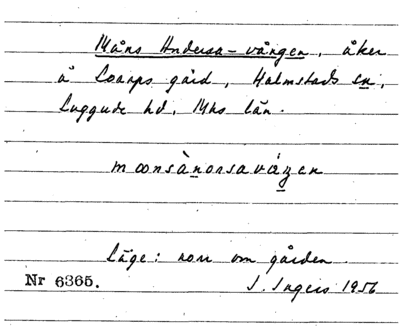 Måns Andersa-vången, åker
å Loarps gård, Halmstads sn,
Luggude hd, Mhs län.
moonsànorsaváŋen
Läge: norr om gården.
Nr 6365.
I. Ingers 1956